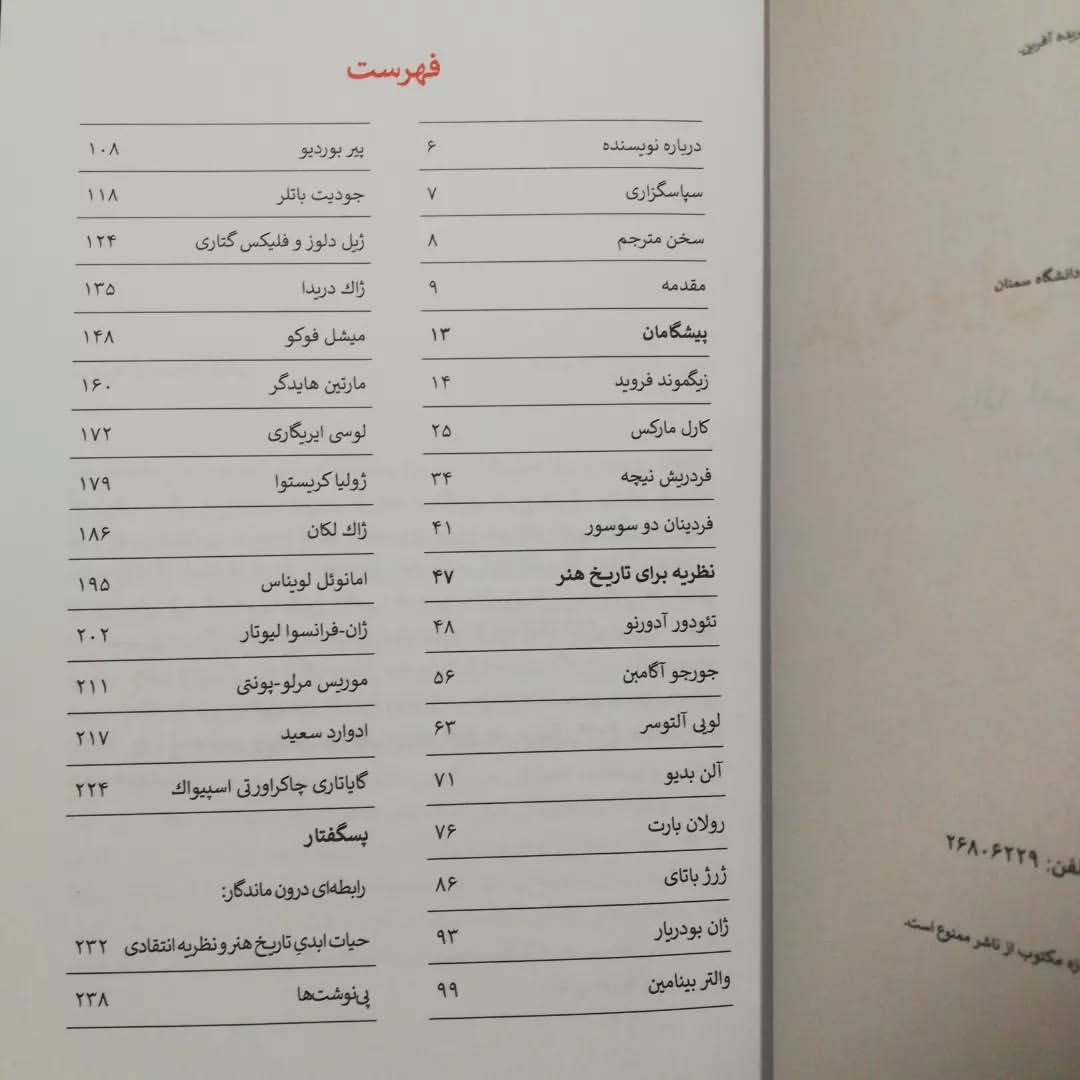 فهرست
درباره نویسنده ۶
سپاسگزاری ۷
سخن مترجم ۸
مقدمه ۹
پیشگامان ۱۳
زیگموند فروید ۱۴
کارل مارکس ۲۵
فردریش نیچه ۳۴
فردینان دو سوسور ۴۱
نظریه برای تاریخ هنر ۴۷
تئودور آدورنو ۴۸
جورجو آگامبن ۵۶
لویی آلتوسر ۶۳
آلن بدیو ۷۱
رولان بارت ۷۶
ژرژ باتای ۸۶
ژان بودریار ۹۳
والتر بینامین ۹۹
پیر بوردیو ۱۰۸
جودیت باتلر ۱۱۸
ژیل دلوز و فلیکس گتاری ۱۲۴
ژاک دریدا ۱۳۵
میشل فوکو ۱۴۸
مارتین هایدگر ۱۶۰
لوسی ایریگاری ۱۷۲
ژولیا کریستوا ۱۷۹
ژاک لکان ۱۸۶
امانوئل لویناس ۱۹۵
ژان-فرانسوا لیوتار ۲۰۲
موریس مرلو-پونتی ۲۱۱
ادوارد سعید ۲۱۷
گایاتاری چاکراورتی اسپیواک ۲۲۴
پسگفتار
رابطه‌ای درون ماندگار:
حیات ابدیِ تاریخ هنر و نظریه انتقادی ۲۳۲
پی‌نوشت‌ها ۲۳۸
آفرین
دانشگاه سمنان
۲۶۸۰۶۲۲۹
مکتوب از ناشر ممنوع است.